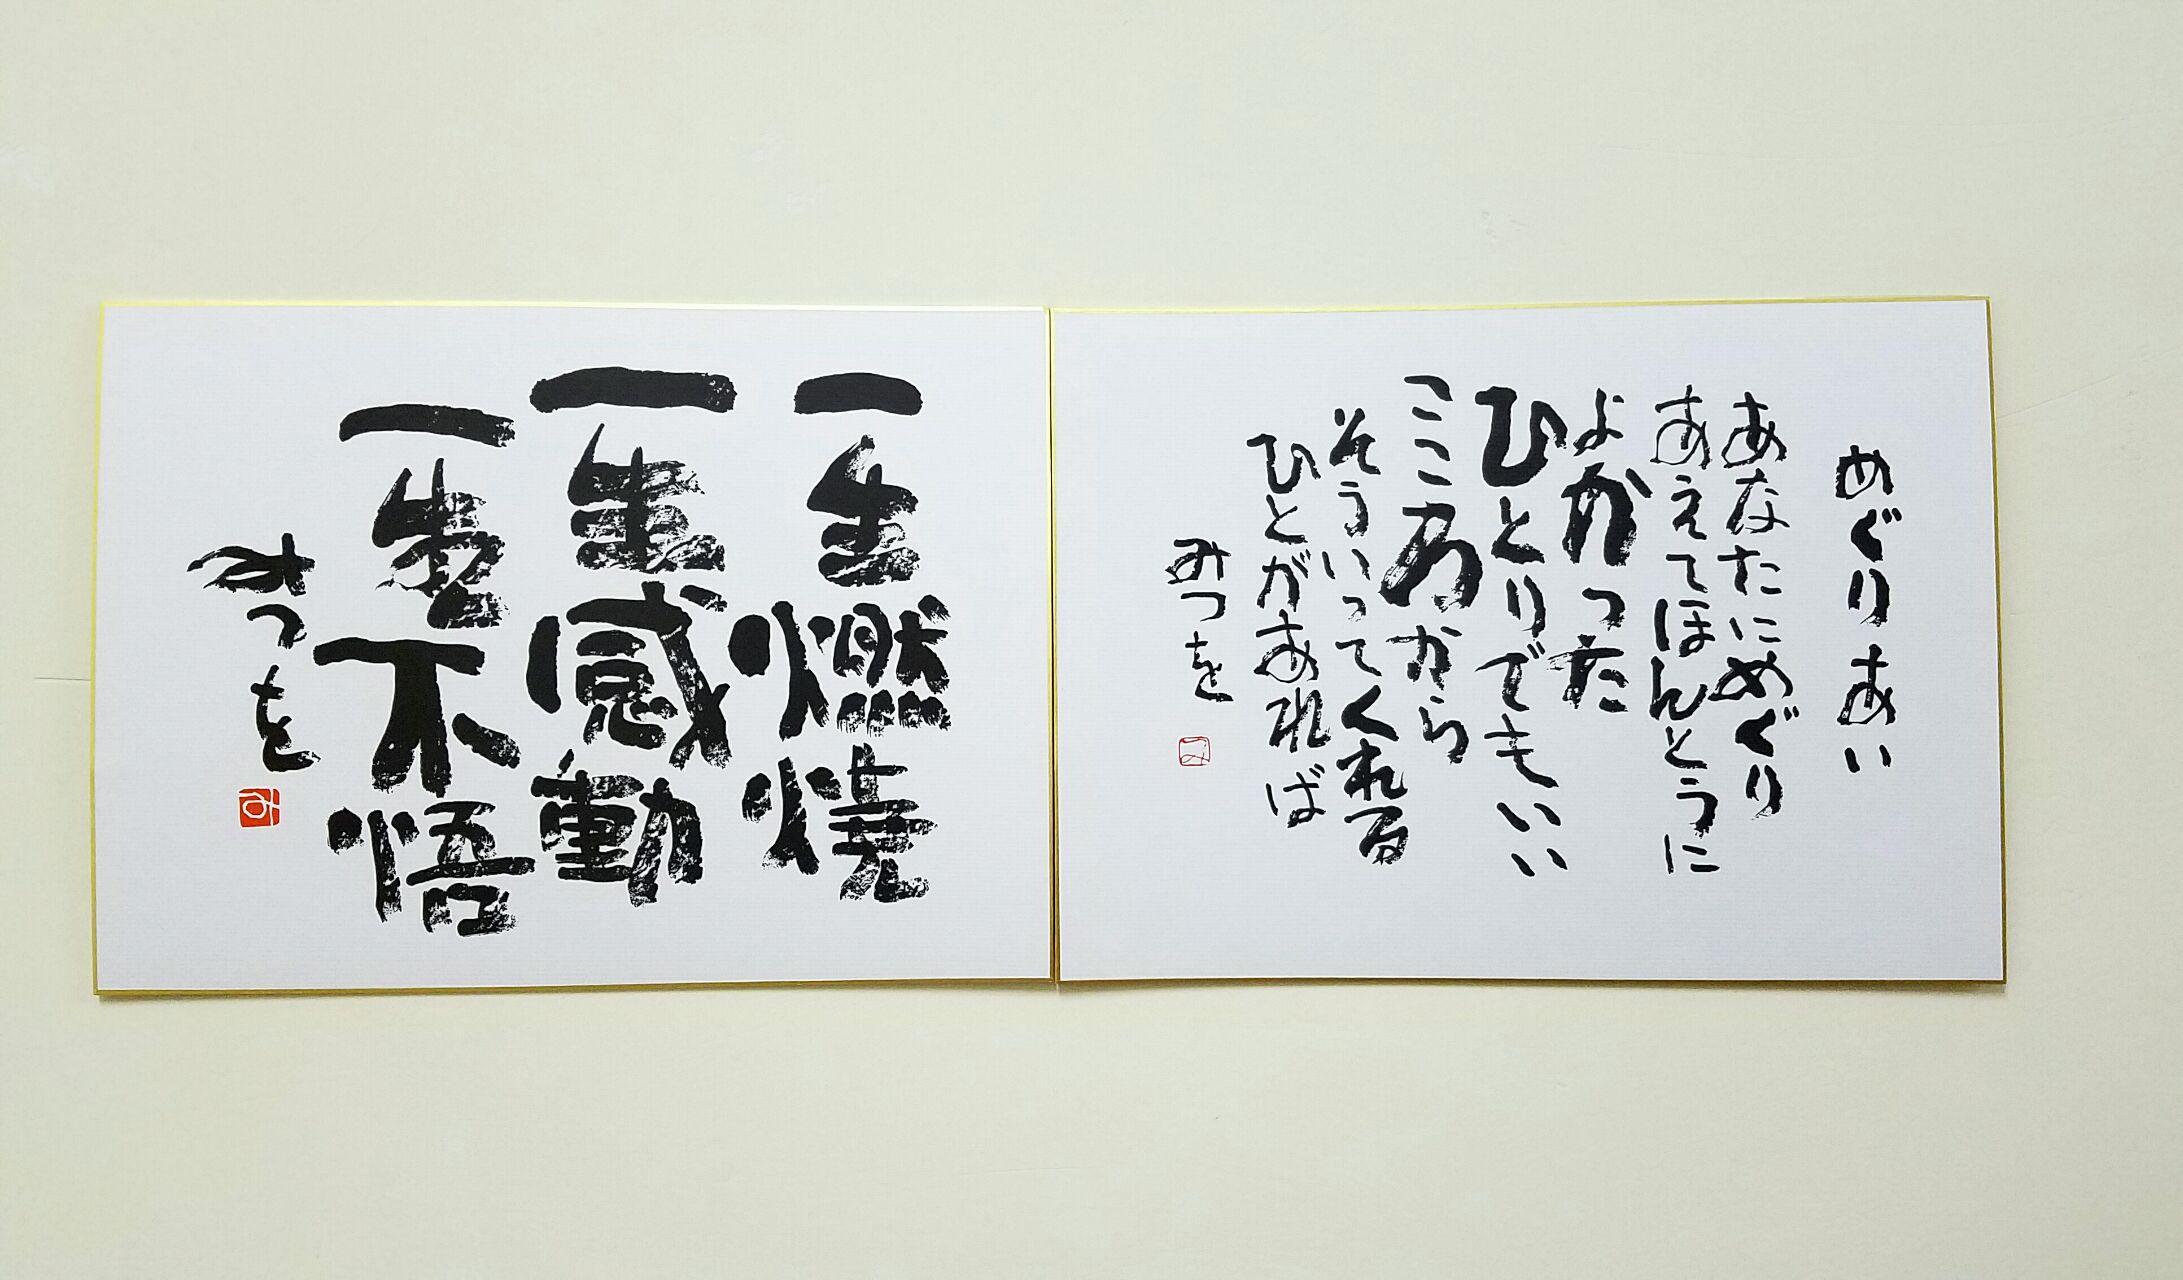 めぐりあい
あなたにめぐり
あえてほんとうに
よかった
ひとりでもいい
こころから
そういってくれる
ひとがあれば
みつを
一生燃焼
一生感動
一生不悟
みつを